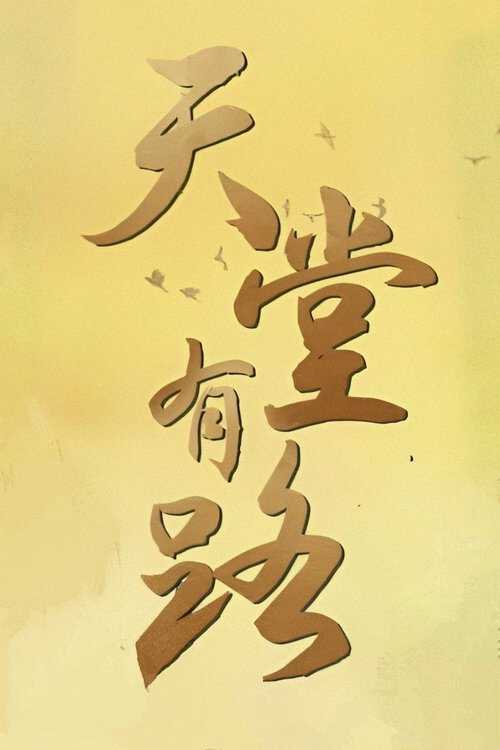 天堂
有
路